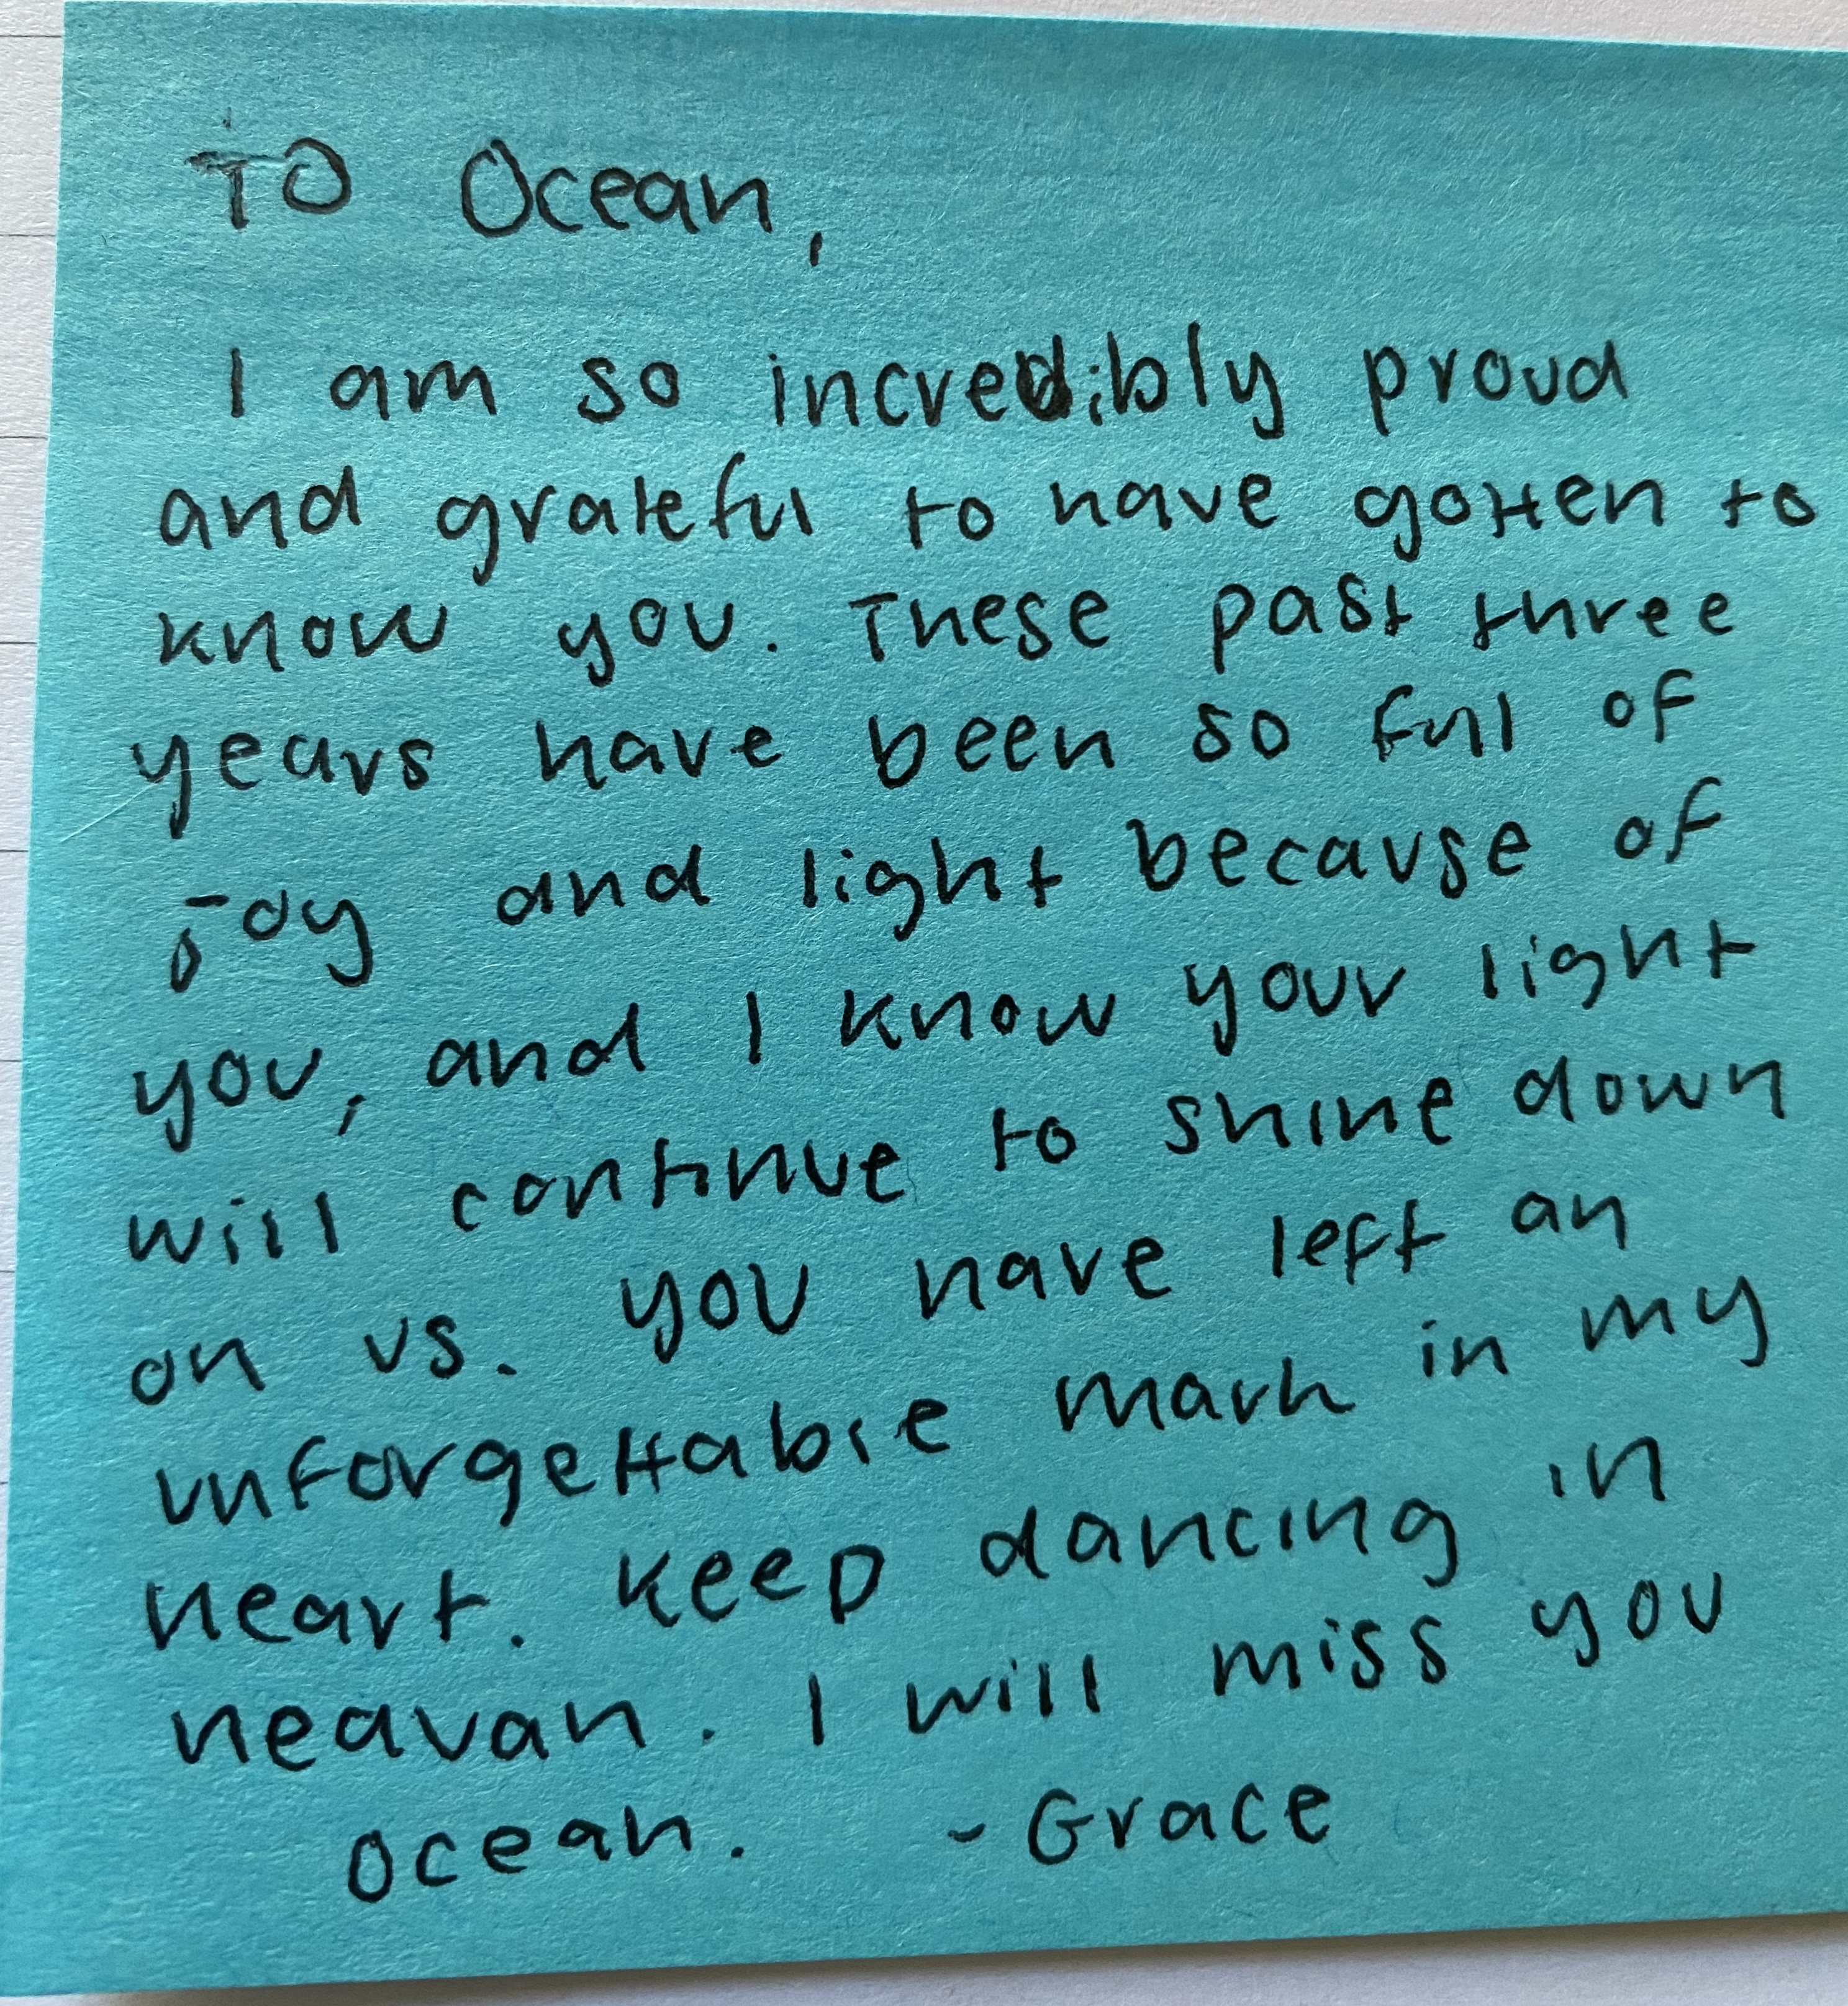 To Ocean,
I am so incredibly proud
and grateful to have gotten to
know you. These past three
years have been so full of
joy and light because of
you, and I know your light
will continue to shine down
on us. you have left an
unforgettable mark in my
heart. Keep dancing in
heavan. I will miss you
ocean. - Grace